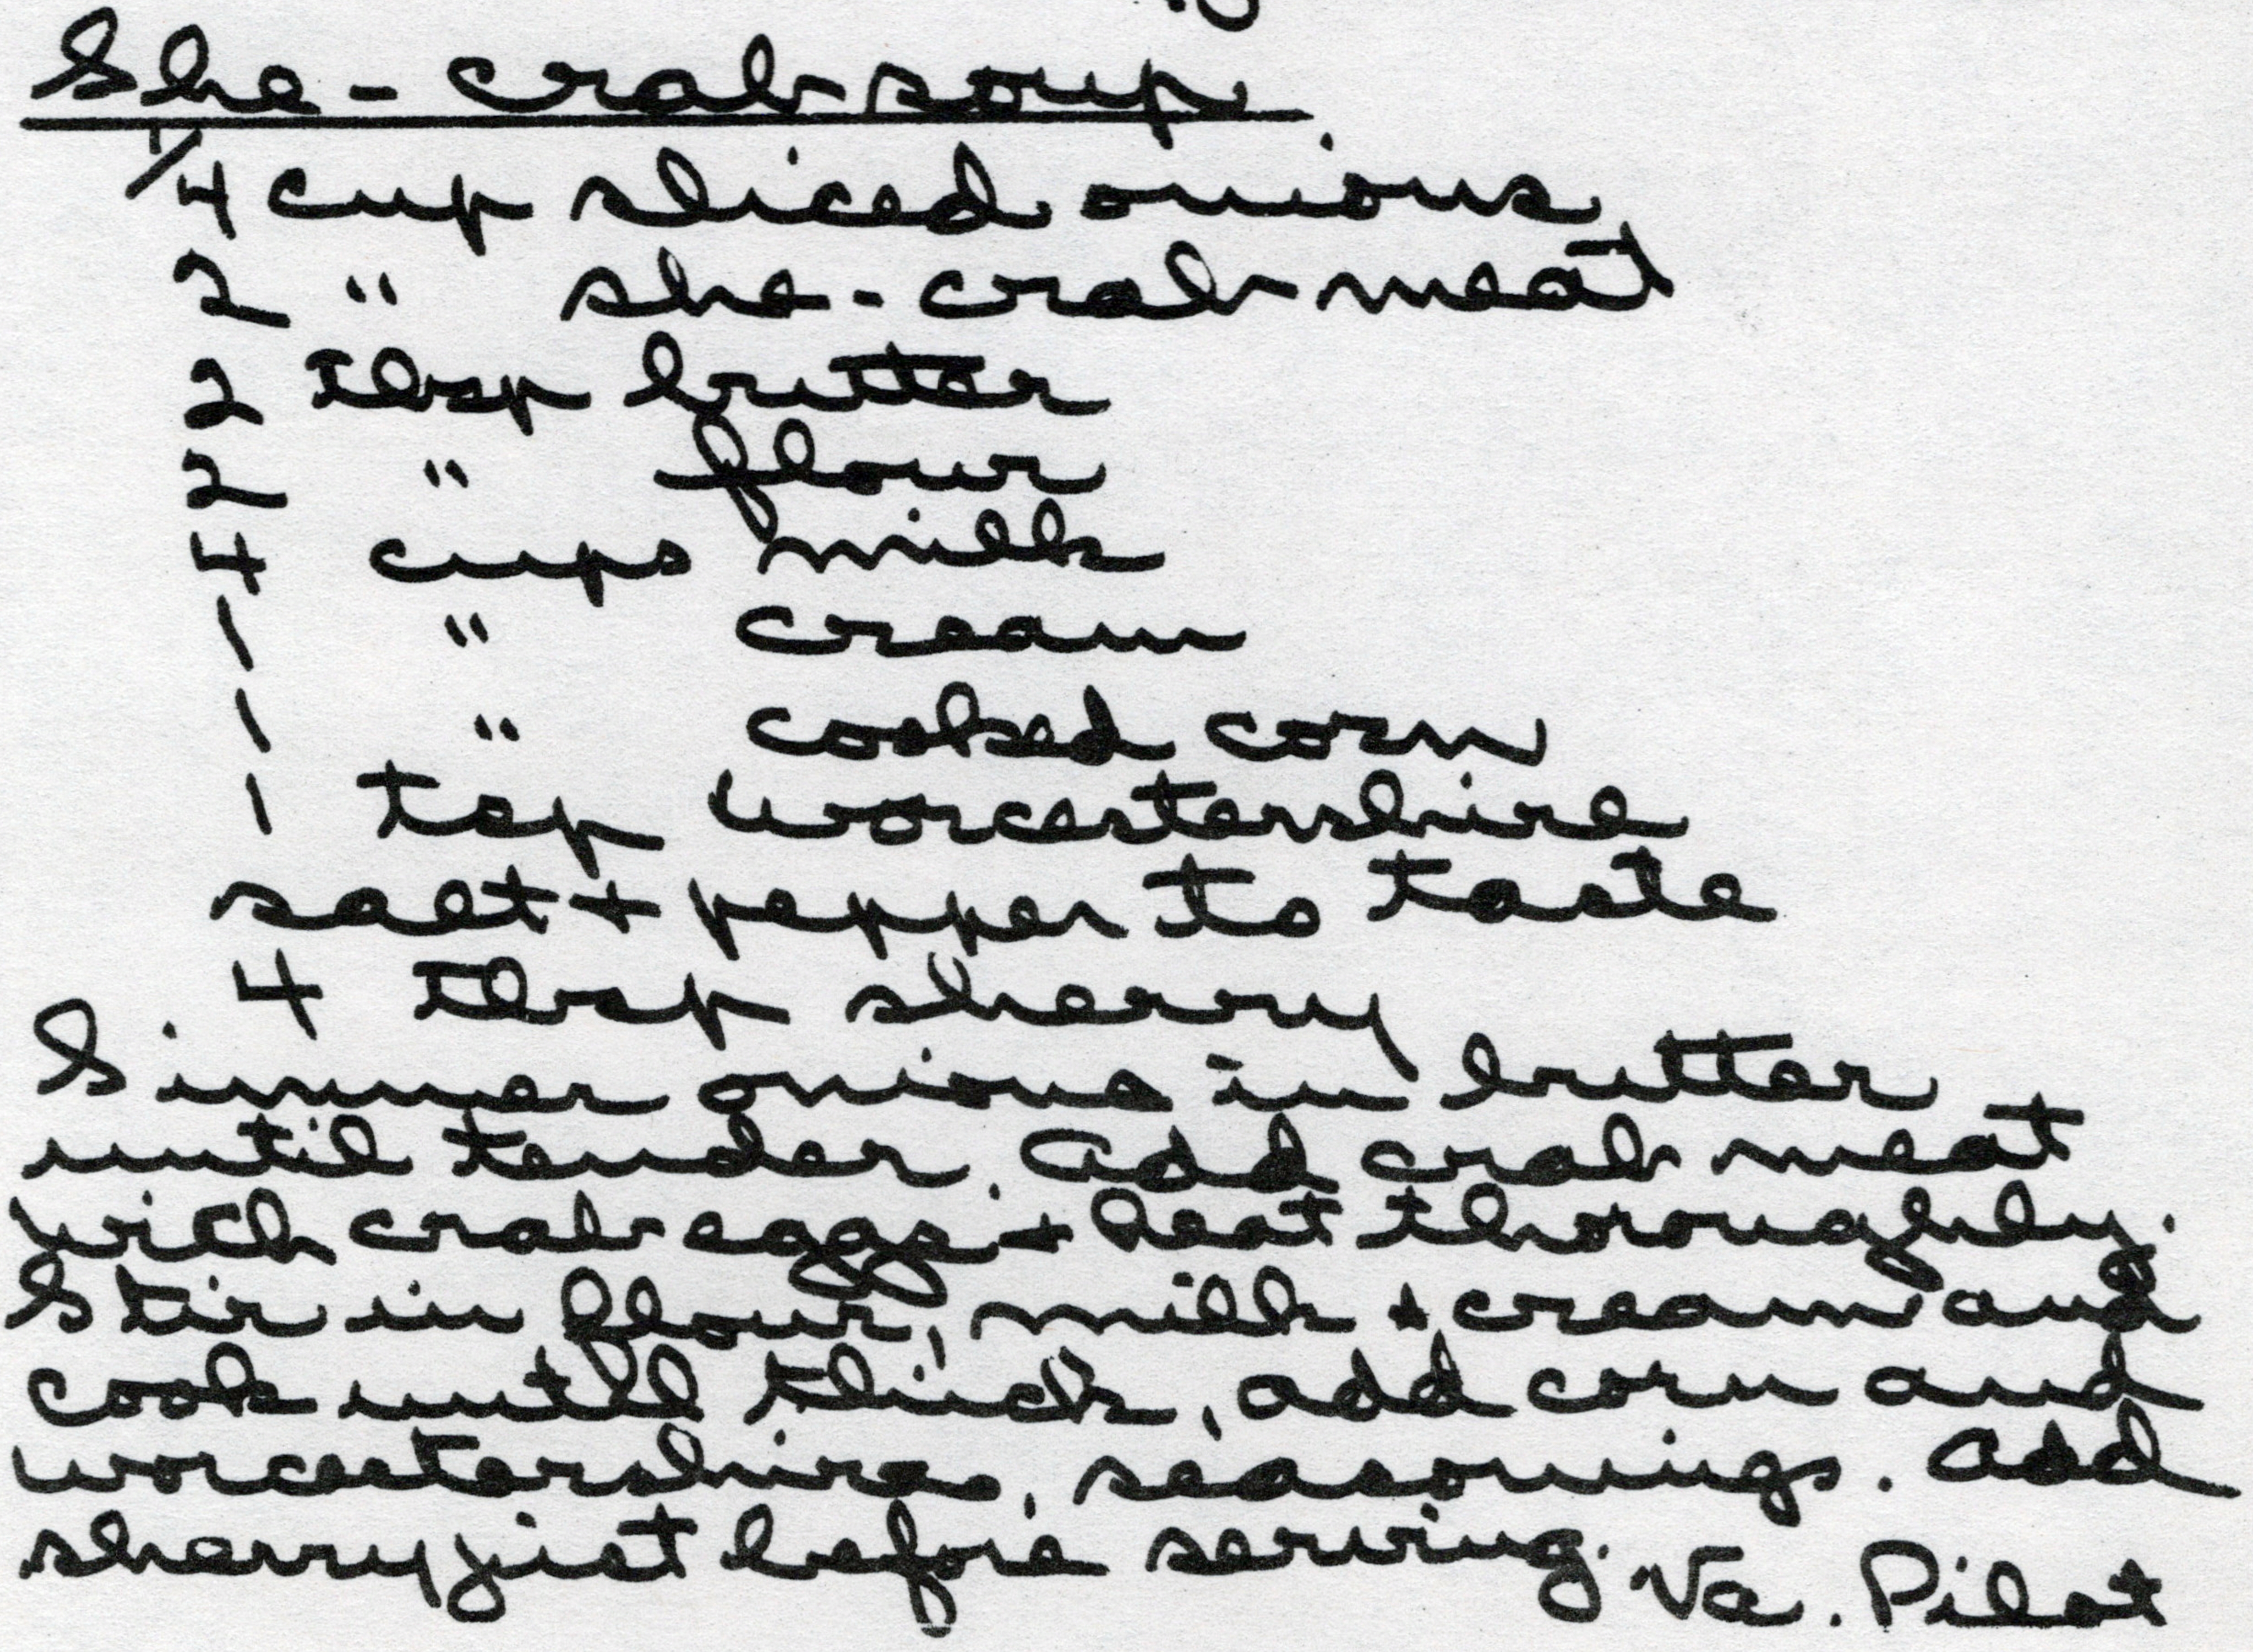 She-crab soup
1/4 cup sliced onions
2 " she-crab meat
2 Tbsp butter
2 " flour
4 cups milk
1 " cream
1 " cooked corn
1 tsp Worcestershire
salt + pepper to taste
4 Tbsp sherry
Simmer onions in butter
until tender. Add crab meat
with crab eggs + heat thoroughly.
Stir in flour, milk + cream and
cook until thick, add corn and
worcestershire, seasonings. Add
sherry just before serving.
Va. Pilot